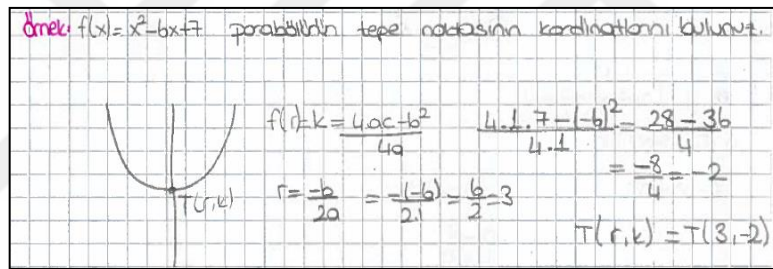 örnek: f(x) = x²-6x+7 parabolünün tepe noktasının kordinatlarını bulunuz.
f(r)=k = 4.ac-b² / 4a
4.1.7-(-6)² / 4.1 = 28-36 / 4
= -8/4 = -2
T(r,k)
r = -b/2a = -(-6)/2.1 = 6/2 = 3
T(r,k) = T(3,-2)